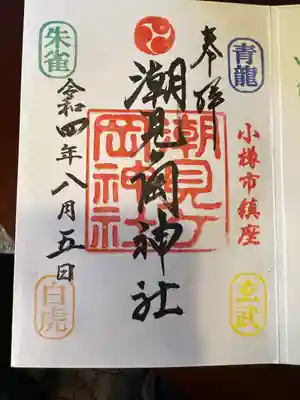 奉拝
青龍
小樽市鎮座
玄武
潮見岡神社
潮見丁
岡神社
朱雀
令和四年八月五日
白虎